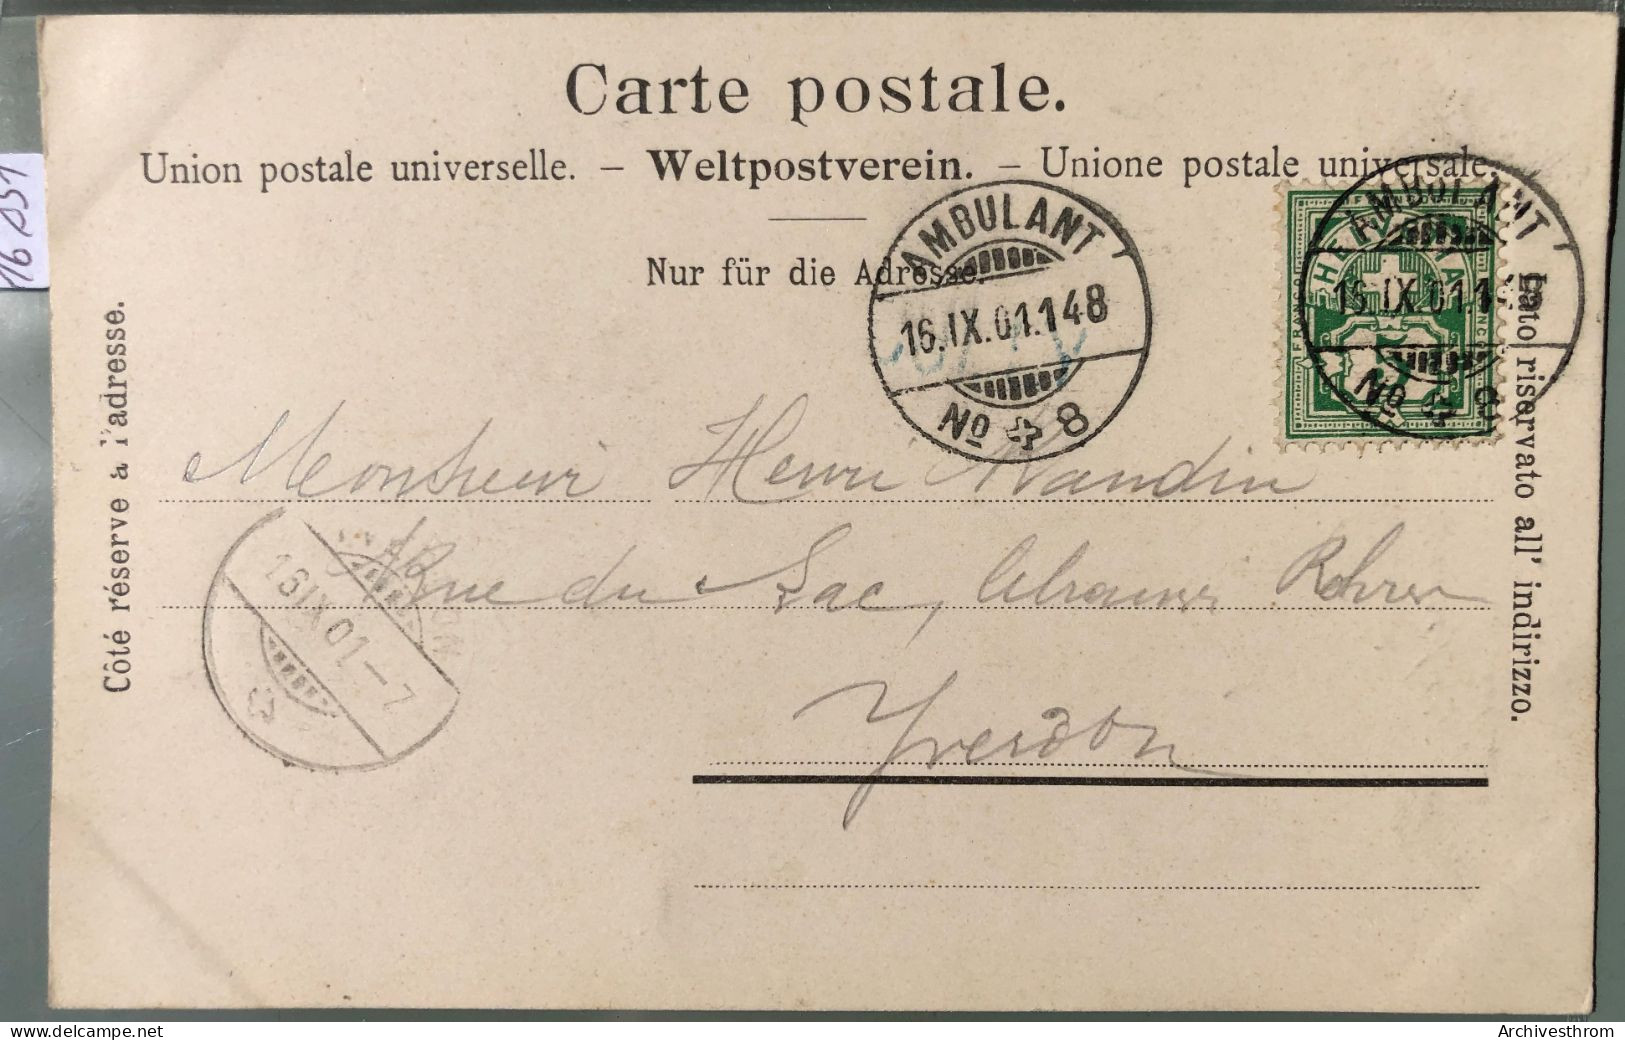 Carte postale.
Union postale universelle. – Weltpostverein. – Unione postale universale.
Nur für die Adresse.
AMBULANT
16.IX.01.148
No 8
AMBULANT
16.IX.01.1
No 8
HELVETIA
FRANCO
5
Côté réservé à l'adresse.
Lato riservato all' indirizzo.
Monsieur Henri
Rue du Lac,
Yverdon
YVERDON
16.IX.01.–7
116 151
Archivesthrom